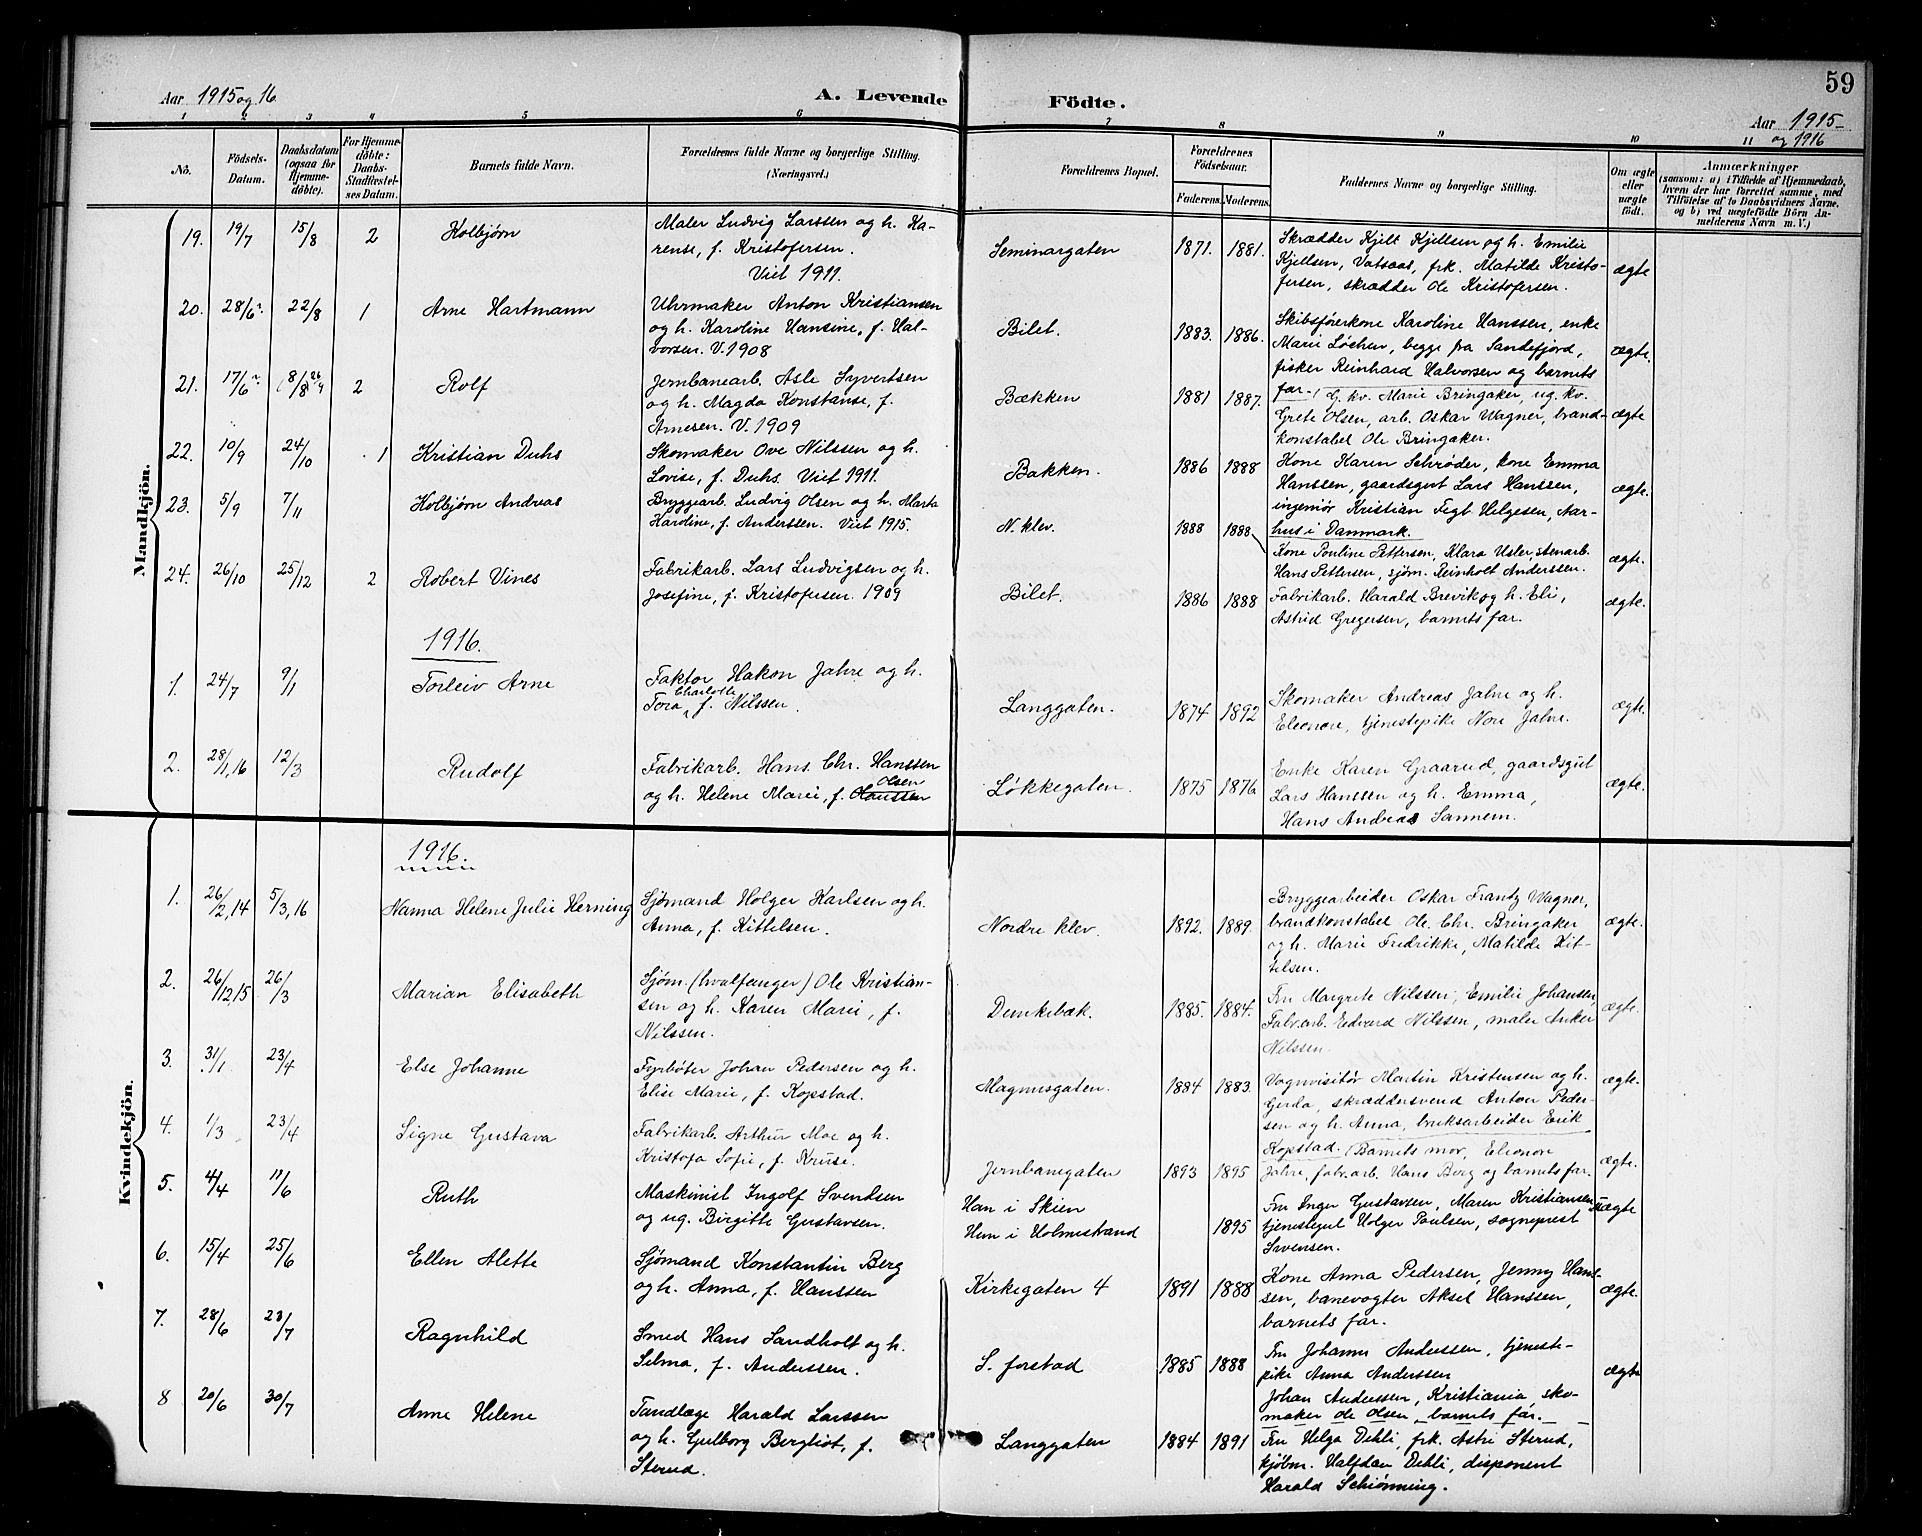 59
Aar 1915 og 16
A. Levende
Födte.
Aar 1915-
og 1916
1 2 3 4 5 6 7 8 9 10 11
No.
Födsels-
Datum.
Daabsdatum
(ogsaa for
Hjemme-
döbte).
For Hjemme-
döbte:
Daabs-
Stadfæstel-
ses Datum.
Barnets fulde Navn.
Forældrenes fulde Navne og borgerlige Stilling.
(Næringsvei.)
Forældrenes Bopæl.
Forældrenes
Födselsaar.
Faderens. Moderens.
Faddernes Navne og borgerlige Stilling.
Om ægte
eller
uægte
födt.
Anmærkninger
(saasom: a) i Tilfælde af Hjemmedaab,
hvem der har forrettet samme, med
Tilföielse af to Daabsvidners Navne,
og b) ved uægtefödte Börn An-
melderens Navn m. V.)
Mandkjön.
19. 19/7 15/8 2 Kolbjørn
Maler Ludvig Larssen og h. Ka-
rense, f. Kristofersen.
Viet 1911.
Seminargaten 1871. 1881.
Skrædder Kjill Kjellsen og h. Emilie
Kjellsen, Vatsaas, frk. Matilde Kristo-
fersen, skrædder Ole Kristofersen.
ægte
20. 28/6 22/8 1 Arne Hartmann
Uhrmaker Anton Kristiansen
og h. Karoline Hansine, f. Hal-
vorsen. V. 1908
Bilet. 1883. 1886.
Skibsførerkone Karoline Hanssen, enke
Marie Løchen, begge fra Sandefjord,
fisker Reinhard Halvorsen og barnets
far.
ægte.
21. 17/6 8/8 2 Rolf
Jernbanearb. Asle Syvertsen
og h. Magda Konstanse, f.
Arnesen. V. 1909
Bækken 1881 1887.
G. kv. Marie Bringaker, ug. kv.
Grete Olsen, arb. Oskar Wagner, brand-
konstabel Ole Bringaker.
ægte
22. 10/9 24/10 1 Kristian Duhs
Skomaker Ove Nilssen og h.
Lovise, f. Duhs. Viet 1911.
Bakken. 1886 1888
Kone Karen Schrøder, kone Emma
Hanssen, gaardsgut Lars Hanssen,
ingeniør Kristian Fegt Helgesen, Aar-
hus i Danmark.
ægte.
23. 5/9 7/11 Kolbjørn Andreas
Bryggearb. Ludvig Olsen og h. Marta
Karoline, f. Anderssen. Viet 1915.
N. klev. 1888 1888
Kone Pouline Pettersen, Klara Usler, stenarb.
Hans Pettersen, sjøm. Reinholt Anderssen.
ægte.
24. 26/10 25/12 2 Robert Vines
Fabrikarb. Lars Ludvigsen og h.
Josefine, f. Kristofersen. 1909
Bilet. 1886 1888
Fabrikarb. Harald Brevik og h. Eli,
Astrid Gregersen, barnets far.
ægte.
1916.
1. 24/7 9/1 Torleiv Arne
Faktor Hakon Jahre og h.
Tora Charlotte f. Nilssen.
Langgaten. 1874 1892
Skomaker Andreas Jahre og h.
Eleonore, tjenestepike Nore Jahre.
ægte.
2. 28/1, 16 12/3 Rudolf
Fabrikarb. Hans Chr. Hanssen
og h. Helene Marie, f. Hanssen Olsen
Løkkegaten. 1875 1876
Enke Karen Graarud, gaardsgut
Lars Hanssen og h. Emma,
Hans Andreas Sannem.
ægte.
Kvindekjön.
1916.
1. 26/2, 14 5/3, 16 Nanna Helene Julie Herning
Sjømand Holger Karlsen og h.
Anna, f. Kittelsen.
Nordre klev. 1892. 1889
Bryggearbeider Oskar Frantz Wagner,
brandkonstabel Ole Chr. Bringaker
og h. Marie Fredrikke, Matilde Kit-
telsen.
ægte.
2. 26/12 15 26/3 Marian Elisabeth
Sjøm. (hvalfanger) Ole Kristian-
sen og h. Karen Marie, f.
Nilssen.
Dunkebæk. 1885. 1884.
Fru Margrete Nilssen, Emilie Johansen,
Fabr.arb. Edvard Nilssen, maler Anker
Nilssen.
ægte.
3. 31/1 23/4 Else Johanne
Fyrbøter Johan Pedersen og h.
Elise Marie, f. Kopstad.
Magnusgaten. 1884 1883.
Vognvisitør Martin Kristensen og h.
Gerda, skræddersvend Anton Peder-
sen og h. Anna, bruksarbeider Erik
Kopstad.
ægte.
4. 1/3 23/4 Signe Gustava
Fabrikarb. Arthur Moe og h.
Kristofa Sofie, f. Kruse.
Jernbanegaten 1893 1895
Barnets mor, Eleonor
Jahre, fabr.arb. Hans Berg og barnets far.
ægte.
5. 4/4 11/6 Ruth
Maskinist Ingolf Svendsen
og ug. Birgitte Gustavsen.
Han i Skien
Hun i Holmestrand 1895
Fru Inger Gustavsen, Maren Kristiansen,
tjenestegut Holger Poulsen, sogneprest
Svensen.
uægte
6. 15/4 25/6 Ellen Alette
Sjømand Konstantin Berg
og h. Anna, f. Hanssen
Kirkegaten 4 1891 1888
Kone Anna Pedersen, Jenny Hans-
sen, banevogter Aksel Hanssen,
barnets far.
ægte.
7. 28/6 23/7 Ragnhild
Smed Hans Sandholt og h.
Selma, f. Anderssen.
S. forstad 1885 1888
Fru Johanne Anderssen, tjeneste-
pike Anna Anderssen
Johan Anderssen, Kristiania, sko-
maker Ole Olsen, barnets far.
ægte
8 20/6 30/7 Anne Helene
Tandlæge Harald Larssen
og h. Gulborg Bergliot, f.
Sterud.
Langgaten 1884 1891
Fru Helga Dehli, frk. Astri Sterud,
kjøbm. Halfdan Dehli, disponent
Harald Schiønning.